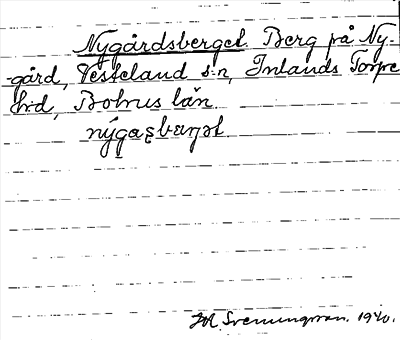 Nygårdsberget. Berg på Ny-
-gård, Västerland s:n, Inlands Torpe
h:d, Bohus län.
Svenungsson. 1940.